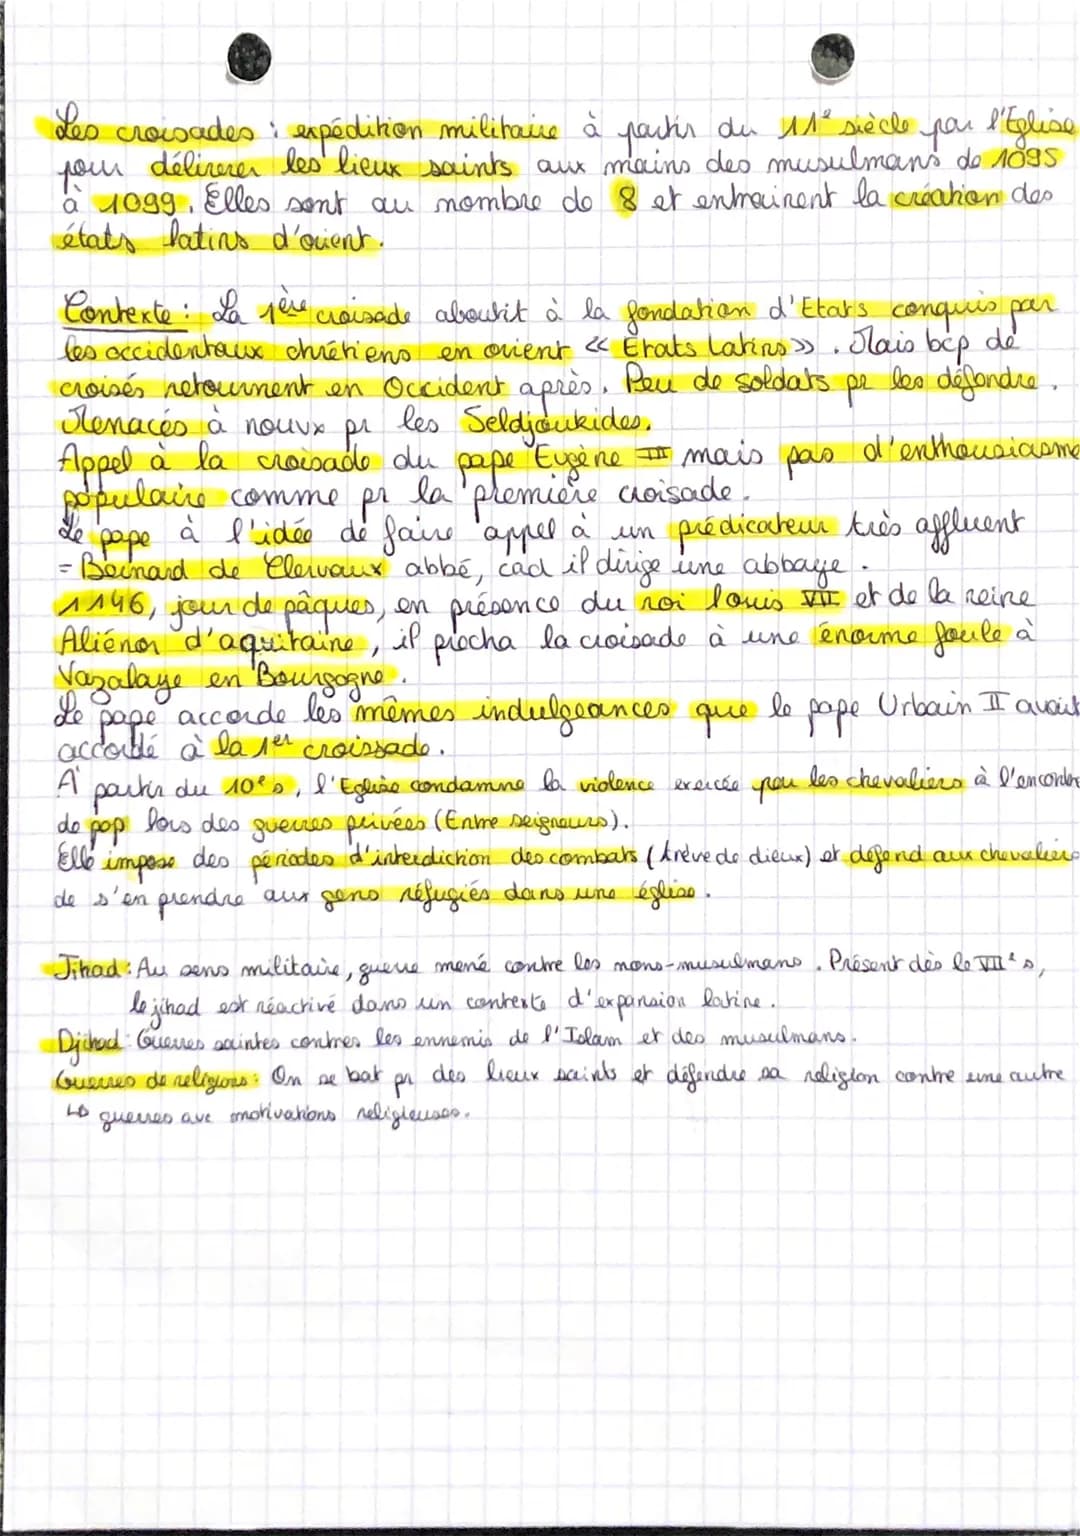 Les croisades : expédition militaire à partir du 11e siècle par l'Eglise
pour délivrer les lieux saints aux mains des musulmans de 1095
à 1099. Elles sont au nombre de 8 et entrainent la création des
états latins d'orient.
Contexte : La 1ère croisade aboutit à la fondation d'Etats conquis par
les occidentaux chrétiens en orient « Etats Latins ». Mais bcp de
croisés retournent en Occident après. Peu de soldats pr les défendre.
Menacés à nouvx pr les Seldjoukides.
Appel à la croisade du pape Eugène III mais pas d'enthousiasme
populaire comme pr la première croisade.
Le pape à l'idée de faire appel à un prédicateur très affluent
= Bernard de Clervaux abbé, cad il dirige une abbaye.
1146, jour de pâques, en présence du roi louis VII et de la reine
Aliénor d'aquitaine, il précha la croisade à une énorme foule à
Vazalaye en Bourgogne.
Le pape accorde les mêmes indulgeances que le pape Urbain II avait
accordé à la 1er croissade.
A partir du 10e s, l'Eglise condamne la violence exercée par les chevaliers à l'encontre
de pop lors des guerres privées (Entre seigneurs).
Elle impose des périodes d'interdiction des combats (trève de dieux) et défend aux chevaliers
de s'en prendre aux gens réfugiés dans une église.
Jihad : Au sens militaire, guerre mené contre les nons-musulmans. Présent dès le VIIe s,
le jihad est réactivé dans un contexte d'expansion latine.
Djihad : Guerres saintes contres les ennemis de l'Islam et des musulmans.
Guerres de religions : On se bat pr des lieux saints et défendre sa religion contre une autre
↳ guerres avc motivations religieuses.